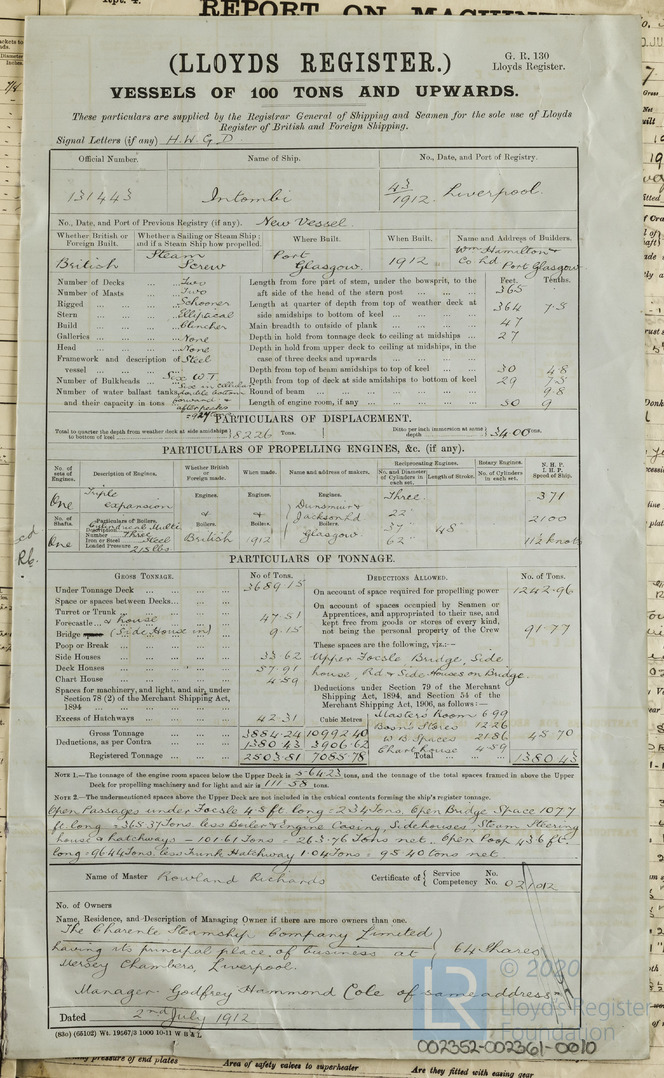 REPORT ON MACHINE
(LLOYDS REGISTER.)
G. R. 130
Lloyds Register.
VESSELS OF 100 TONS AND UPWARDS.
These particulars are supplied by the Registrar General of Shipping and Seamen for the sole use of Lloyds
Register of British and Foreign Shipping.
Signal Letters (if any) H.W.G.D
Official Number. Name of Ship. No., Date, and Port of Registry.
131443 Intombi 43/1912. Liverpool.
No., Date, and Port of Previous Registry (if any). New Vessel.
Whether British or Foreign Built. Whether a Sailing or Steam Ship; and if a Steam Ship how propelled. Where Built. When Built. Name and Address of Builders.
British Steam Screw Port Glasgow. 1912 Wm Hamilton & Co Ld Port Glasgow
Number of Decks ... Two
Number of Masts ... Two
Rigged ... Schooner
Stern ... Elliptical
Build ... Clincher
Galleries ... None
Head ... None
Framework and description of vessel ... Steel
Number of Bulkheads ... Six W.T.
Number of water ballast tanks, and their capacity in tons Six in cellular double bottom forward & afterpeaks
Feet. Tenths.
Length from fore part of stem, under the bowsprit, to the aft side of the head of the stern post ... 365
Length at quarter of depth from top of weather deck at side amidships to bottom of keel ... 364 7.5
Main breadth to outside of plank ... 47
Depth in hold from tonnage deck to ceiling at midships ... 27
Depth in hold from upper deck to ceiling at midships, in the case of three decks and upwards ...
Depth from top of beam amidships to top of keel ... 30 4.8
Depth from top of deck at side amidships to bottom of keel 29 7.5
Round of beam ... 9.8
Length of engine room, if any ... 50 9
PARTICULARS OF DISPLACEMENT.
Total to quarter the depth from weather deck at side amidships to bottom of keel 8226 Tons. Ditto per inch immersion at same depth 34.00 Tons.
PARTICULARS OF PROPELLING ENGINES, &c. (if any).
No. of sets of Engines. Description of Engines. Whether British or Foreign made. When made. Name and address of makers. Reciprocating Engines. No. and Diameter of Cylinders in each set. Length of Stroke. Rotary Engines. No. of Cylinders in each set. N. H. P. I. H. P. Speed of Ship.
One Triple expansion Engines. Engines. Engines. Three 371
No. of Shafts. Particulars of Boilers. & Boilers. & Boilers. Dunsmuir & Jackson Ld Boilers. 22" 2100
One Description Cylindrical Multi
Number Three
Iron or Steel Steel
Loaded Pressure 215 lbs
British 1912 Glasgow 37" 62" 48" 11½ knots
PARTICULARS OF TONNAGE.
GROSS TONNAGE. No of Tons.
Under Tonnage Deck ... 3689.15
Space or spaces between Decks...
Turret or Trunk ...
Forecastle... & house 47.51
Bridge (Side House in) 9.15
Poop or Break ...
Side Houses ... 33.62
Deck Houses ... 57.91
Chart House ... 4.59
Spaces for machinery, and light, and air, under Section 78 (2) of the Merchant Shipping Act, 1894 ...
Excess of Hatchways ... 42.31
Cubic Metres
Gross Tonnage 3884.24 10992.40
Deductions, as per Contra ... 1380.43 3906.62
Registered Tonnage ... 2503.81 7085.78
DEDUCTIONS ALLOWED. No. of Tons.
On account of space required for propelling power 1242.96
On account of spaces occupied by Seamen or Apprentices, and appropriated to their use, and kept free from goods or stores of every kind, not being the personal property of the Crew 91.77
These spaces are the following, viz.:—
Upper Focsle Bridge, Side house, Rd & Side Houses on Bridge.
Deductions under Section 79 of the Merchant Shipping Act, 1894, and Section 54 of the Merchant Shipping Act, 1906, as follows:—
Masters Room 6.99
Bosns Stores 12.26
W B Spaces 21.86
Chart house 4.59
45.70
Total ... 1380.43
NOTE 1.—The tonnage of the engine room spaces below the Upper Deck is 564.23 tons, and the tonnage of the total spaces framed in above the Upper
Deck for propelling machinery and for light and air is 111.58 tons.
NOTE 2.—The undermentioned spaces above the Upper Deck are not included in the cubical contents forming the ship's register tonnage.
Open Passages under Focsle 4.5 ft long = 2.34 Tons. Open Bridge Space 107.7
ft long = 365.37 Tons less Boiler & Engine Casing, Sidehouses, Steam Steering
house & hatchways – 101.61 Tons = 263.76 Tons net. Open Poop 43.6 ft
long = 96.44 Tons less Trunk Hatchway 1.04 Tons = 95.40 tons net.
Name of Master Rowland Richards Certificate of Service No. Competency No. 021012
No. of Owners
Name, Residence, and Description of Managing Owner if there are more owners than one.
The Charente Steamship Company Limited
having its principal place of business at 64 Shares
Mersey Chambers, Liverpool.
Manager Godfrey Hammond Cole of same address.
Dated 2nd July 1912
(83o) (65102) Wt. 19567/3 1000 10-11 W B & L
LR
© 2020
Lloyd's Register
Foundation
002352-002361-0010
pressure of end plates
Area of safety valves to superheater
Are they fitted with easing gear